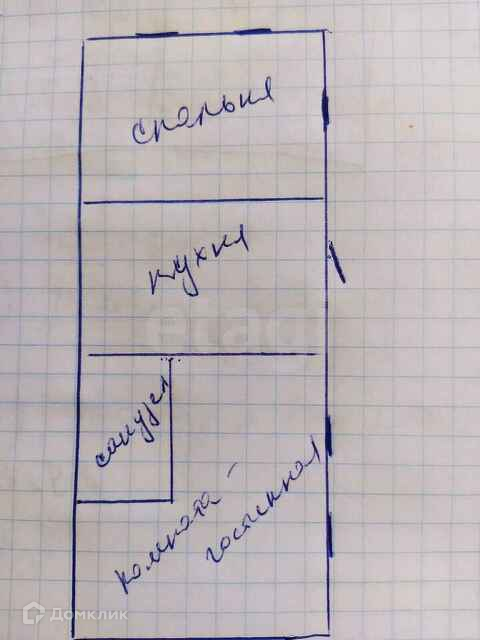 спальня
кухня
etagi
санузел
комната -
гостинная
Домклик